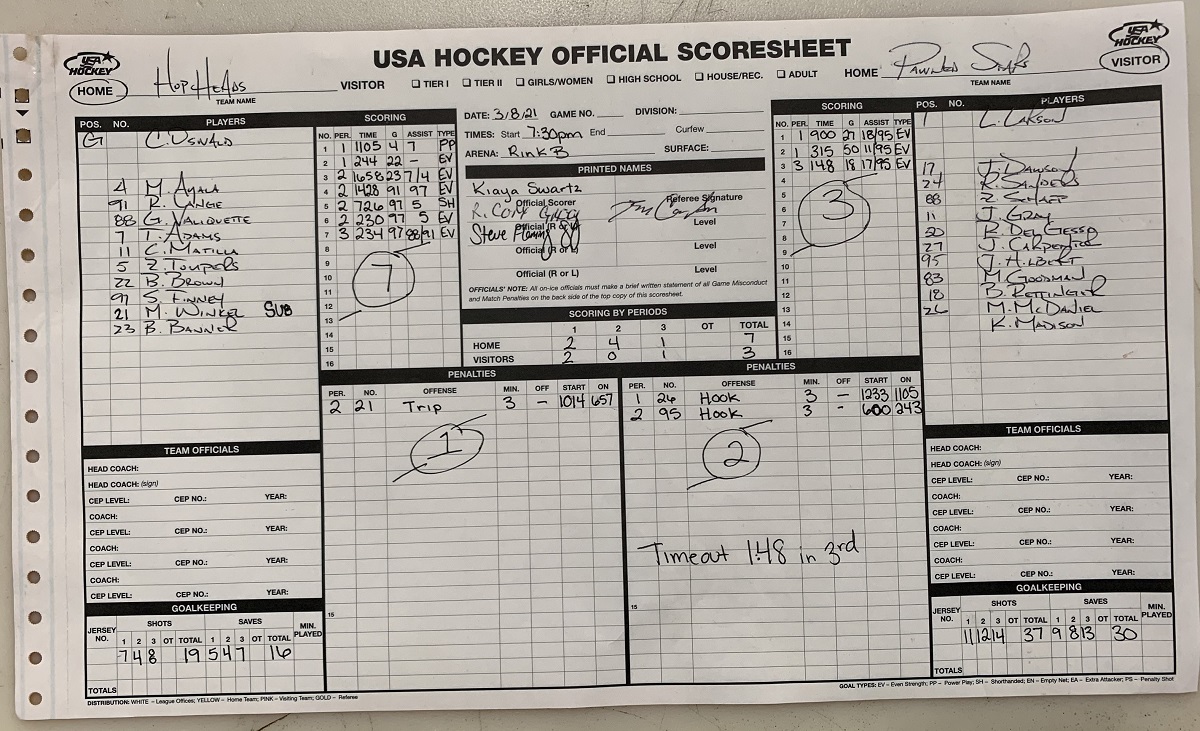 USA HOCKEY OFFICIAL SCORESHEET
USA HOCKEY
HOME
HopHeads
TEAM NAME
VISITOR
TIER I TIER II GIRLS/WOMEN HIGH SCHOOL HOUSE/REC. ADULT
HOME
Pawned Stars
TEAM NAME
USA HOCKEY
VISITOR
POS. NO. PLAYERS
G C. Oswald
4 M. Ayala
91 R. Lange
88 G. Valiquette
7 T. Adams
11 C. Matilla
5 Z. Toupers
22 B. Brown
97 S. Finney
21 M. Winkel SUB
23 B. Banner
SCORING
NO. PER. TIME G ASSIST TYPE
1 1 1105 4 7 PP
2 1 244 22 - EV
3 2 1658 23 7/4 EV
4 2 1428 91 97 EV
5 2 726 97 5 SH
6 2 230 97 5 EV
7 3 234 97 88/91 EV
8
9
10
11
12
13
14
15
16
7
DATE: 3/8/21 GAME NO. DIVISION:
TIMES: Start 7:30pm End Curfew
ARENA: Rink B SURFACE:
PRINTED NAMES
Kiaya Swartz
Official Scorer Referee Signature
Official (R or L) Level
Steve
Official (R or L) Level
Official (R or L) Level
OFFICIALS' NOTE: All on-ice officials must make a brief written statement of all Game Misconduct
and Match Penalties on the back side of the top copy of this scoresheet.
SCORING BY PERIODS
1 2 3 OT TOTAL
HOME 2 4 1 7
VISITORS 2 0 1 3
SCORING
NO. PER. TIME G ASSIST TYPE
1 1 900 27 18/95 EV
2 1 315 50 11/95 EV
3 3 148 18 17/95 EV
4
5
6
7
8
9
10
11
12
13
14
15
16
3
POS. NO. PLAYERS
1 L. Larson
17 J. Dawson
24 R. Sanders
88 Z. Sharp
11 J. Gray
20 R. Del Gesso
27 J. Carpentier
95 J. Hilbert
83 M. Goodman
18 B. Rettinger
26 M. McDaniel
K. Madison
PENALTIES
PER. NO. OFFENSE MIN. OFF START ON
2 21 Trip 3 - 1014 657
1
15
PENALTIES
PER. NO. OFFENSE MIN. OFF START ON
1 26 Hook 3 - 1233 1105
2 95 Hook 3 - 600 243
2
Timeout 1:48 in 3rd
15
TEAM OFFICIALS
HEAD COACH:
HEAD COACH: (sign)
CEP LEVEL: CEP NO.: YEAR:
COACH:
CEP LEVEL: CEP NO.: YEAR:
COACH:
CEP LEVEL: CEP NO.: YEAR:
COACH:
CEP LEVEL: CEP NO.: YEAR:
GOALKEEPING
JERSEY NO. SHOTS SAVES MIN. PLAYED
1 2 3 OT TOTAL 1 2 3 OT TOTAL
7 4 8 19 5 4 7 16
TOTALS
TEAM OFFICIALS
HEAD COACH:
HEAD COACH: (sign)
CEP LEVEL: CEP NO.: YEAR:
COACH:
CEP LEVEL: CEP NO.: YEAR:
COACH:
CEP LEVEL: CEP NO.: YEAR:
COACH:
CEP LEVEL: CEP NO.: YEAR:
GOALKEEPING
JERSEY NO. SHOTS SAVES MIN. PLAYED
1 2 3 OT TOTAL 1 2 3 OT TOTAL
11 12 14 37 9 8 13 30
TOTALS
DISTRIBUTION: WHITE – League Offices; YELLOW – Home Team; PINK – Visiting Team; GOLD – Referee
GOAL TYPES: EV – Even Strength; PP – Power Play; SH – Shorthanded; EN – Empty Net; EA – Extra Attacker; PS – Penalty Shot